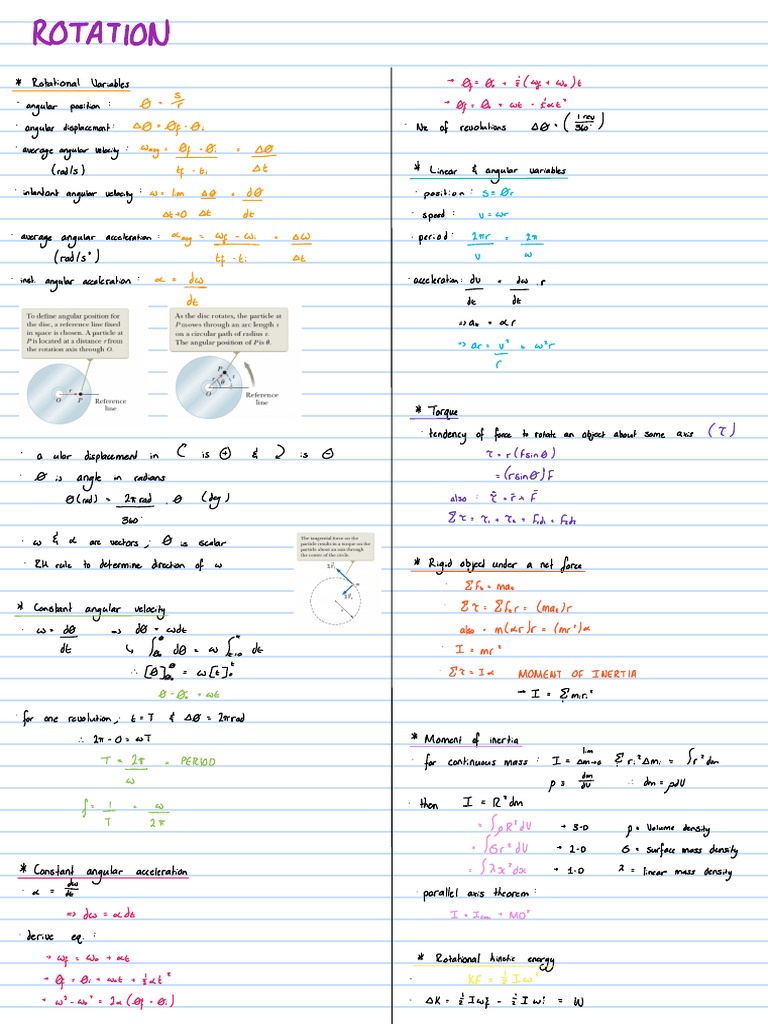 ROTATION
* Rotational Variables
· angular position : θ = s/r
· angular displacement : Δθ = θf - θi
· average angular velocity : ωavg = θf - θi / tf - ti = Δθ / Δt
(rad/s)
· instantant angular velocity : ω = lim Δt→0 Δθ/Δt = dθ/dt
· average angular acceleration : αavg = ωf - ωi / tf - ti = Δω / Δt
(rad/s²)
· inst. angular acceleration : α = dω/dt
To define angular position for
the disc, a reference line fixed
in space is chosen. A particle at
P is located at a distance r from
the rotation axis through O.
O r P
Reference
line
As the disc rotates, the particle at
P moves through an arc length s
on a circular path of radius r.
The angular position of P is θ.
P
r s
θ
O
Reference
line
· a ular displacement in is ⊕ & is ⊖
· θ is angle in radians
θ(rad) = 2π rad / 360° · θ (deg)
· ω & α are vectors ; θ is scalar
· RH rule to determine direction of ω
The tangential force on the
particle results in a torque on the
particle about an axis through
the center of the circle.
* Constant angular velocity
· ω = dθ/dt ⇒ dθ = ωdt
↳ ∫ dθ = ω ∫ dt
∴ [θ] = ω[t]
θ - θ₀ = ωt
· for one revolution, : t = T & Δθ = 2π rad
∴ 2π - 0 = ωT
T = 2π/ω = PERIOD
f = 1/T = ω/2π
* Constant angular acceleration
· α = dω/dt
⇒ dω = αdt
· derive eq. :
→ ωf = ω₀ + αt
→ θf = θi + ω₀t + ½αt²
→ ω² - ω₀² = 2α(θf - θi)
→ θf = θ₀ + ½(ωf + ω₀)t
→ θf = θ₀ + ωt - ½αt²
· Nr. of revolutions Δθ · (1 rev / 360°)
* Linear & angular variables
· position : s = θr
· speed : v = ωr
· period : 2πr/v = 2π/ω
· acceleration : dv/dt = dω/dt · r
⇒ a = αr
⇒ ar = v²/r = ω²r
* Torque
· tendency of force to rotate an object about some axis (τ)
τ = r(Fsinθ)
= (rsinθ)F
also :
Στ = τ₁ + τ₂ = F₁d₁ - F₂d₂
* Rigid object under a net force
ΣF = ma
Στ = ΣF r = (ma)r
also = m(αr)r = (mr²)α
· I = mr²
· Στ = Iα MOMENT OF INERTIA
→ I = Σmiri²
* Moment of inertia
· for continuous mass : I = lim Δm→0 Σri²Δmi = ∫r²dm
ρ = dm/dV ∴ dm = ρdV
· then I = R²dm
= ∫ρR²dV → 3-D ρ = Volume density
= ∫σr²dV → 2-D σ = surface mass density
= ∫λx²dx → 1-D λ = linear mass density
· parallel axis theorem :
I = Icm + MD²
* Rotational kinetic energy
· KE = ½Iω²
· ΔK = ½Iωf² - ½Iωi² = W